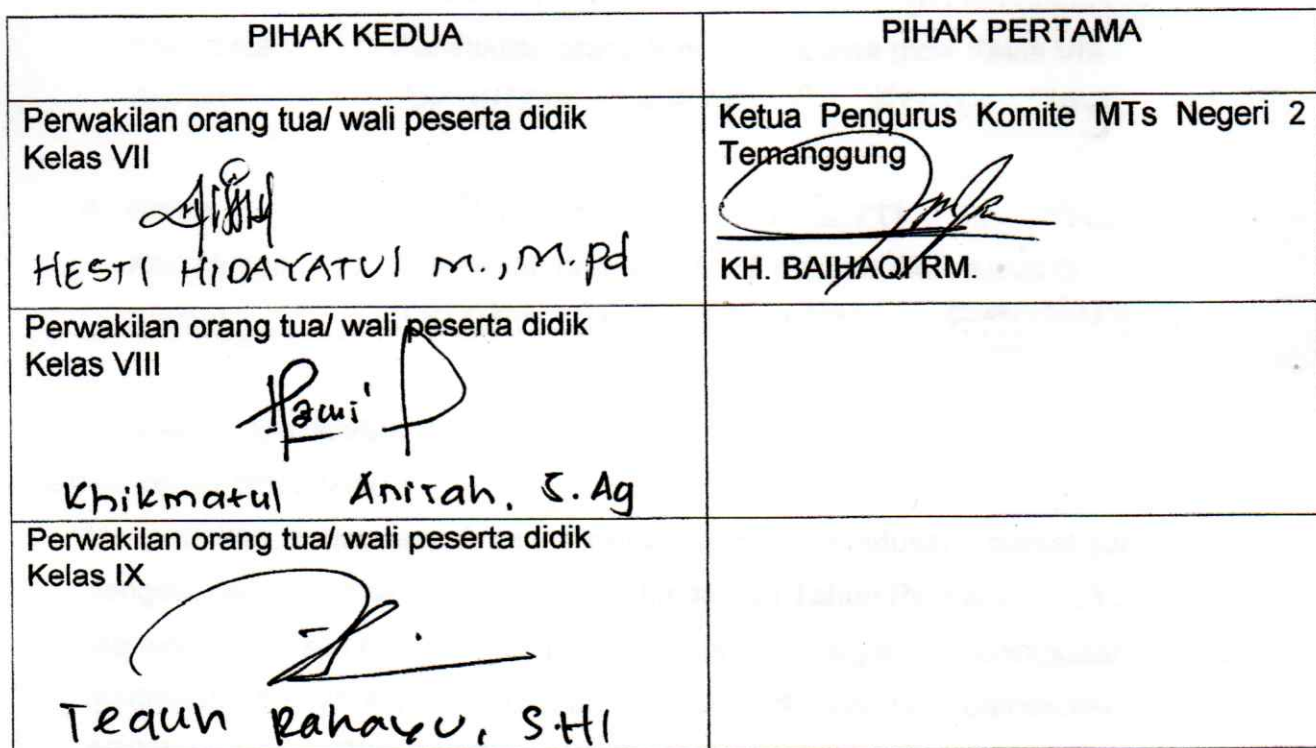 PIHAK KEDUA
PIHAK PERTAMA
Perwakilan orang tua/ wali peserta didik
Kelas VII
HESTI HIDAYATUl M., M.Pd
Ketua Pengurus Komite MTs Negeri 2
Temanggung
KH. BAIHAQI RM.
Perwakilan orang tua/ wali peserta didik
Kelas VIII
Khikmatul Anisah, S.Ag
Perwakilan orang tua/ wali peserta didik
Kelas IX
Teguh Rahayu, SHI